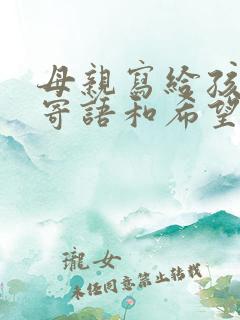 母親寫給孩
寄語和希望
瓏女
未經同意禁止轉載